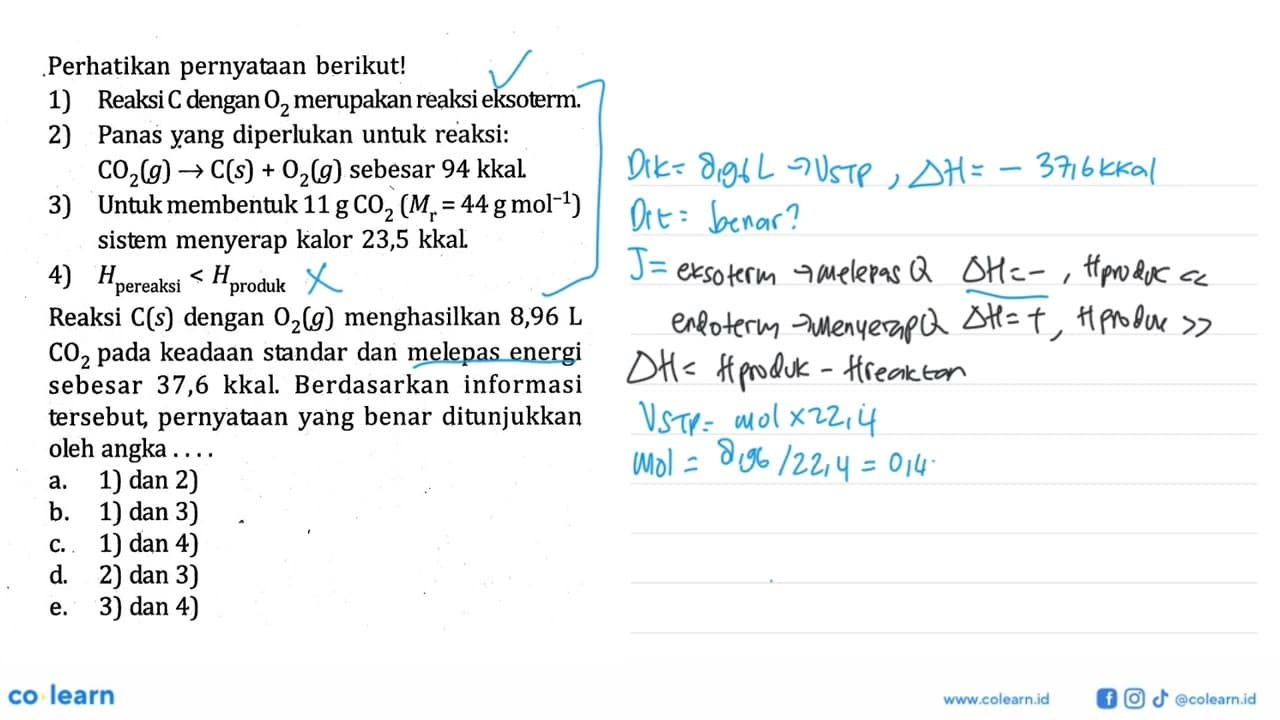 .Perhatikan pernyataan berikut!
1) Reaksi C dengan O₂ merupakan reaksi eksoterm.
2) Panas yang diperlukan untuk reaksi:
CO₂(g) → C(s) + O₂(g) sebesar 94 kkal.
3) Untuk membentuk 11 g CO₂ (Mᵣ = 44 g mol⁻¹)
sistem menyerap kalor 23,5 kkal.
4) H pereaksi < H produk X
Reaksi C(s) dengan O₂(g) menghasilkan 8,96 L
CO₂ pada keadaan standar dan melepas energi
sebesar 37,6 kkal. Berdasarkan informasi
tersebut, pernyataan yang benar ditunjukkan
oleh angka . . . .
a. 1) dan 2)
b. 1) dan 3)
c. 1) dan 4)
d. 2) dan 3)
e. 3) dan 4)
Dik = 8,96 L → VSTP , ΔH = – 37,6 kkal
Dit = benar?
J = eksoterm → melepas Q ΔH = – , Hproduk <<
endoterm → menyerap Q ΔH = + , Hproduk >>
ΔH = Hproduk – Hreaktan
VSTP = mol × 22,4
mol = 8,96 / 22,4 = 0,4
co learn
www.colearn.id
@colearn.id